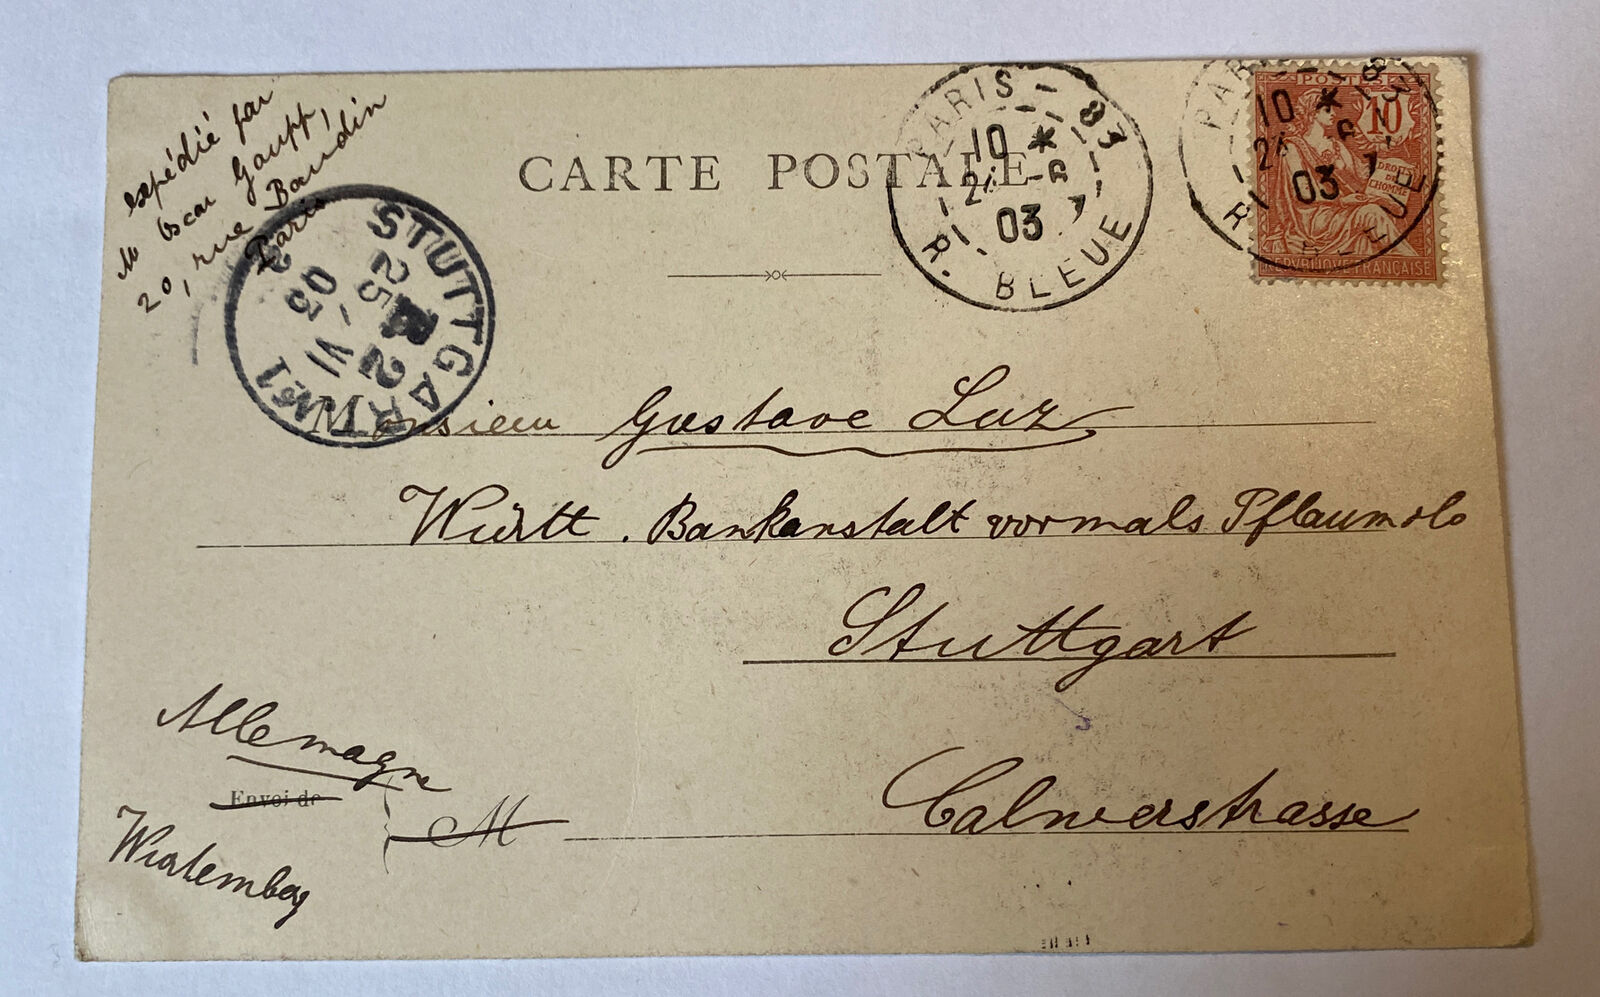 expédié par
M Oscar Gaupp,
20, rue Baudin
Paris
CARTE POSTALE
PARIS - 83
10 *
24 - 6
03
R. BLEUE
PARIS 83
10 *
24 6
03
R. BLEUE
POSTES
10
DROITS
DE
L'HOMME
REPVBLIQVE FRANÇAISE
STUTTGART No 1
25
VI
03
2
Monsieur Gustave Luz
Württ. Bankanstalt vormals Pflaum & Co
Stuttgart
Allemagne
Envoi de
M
Calwerstrasse
Wurtemberg